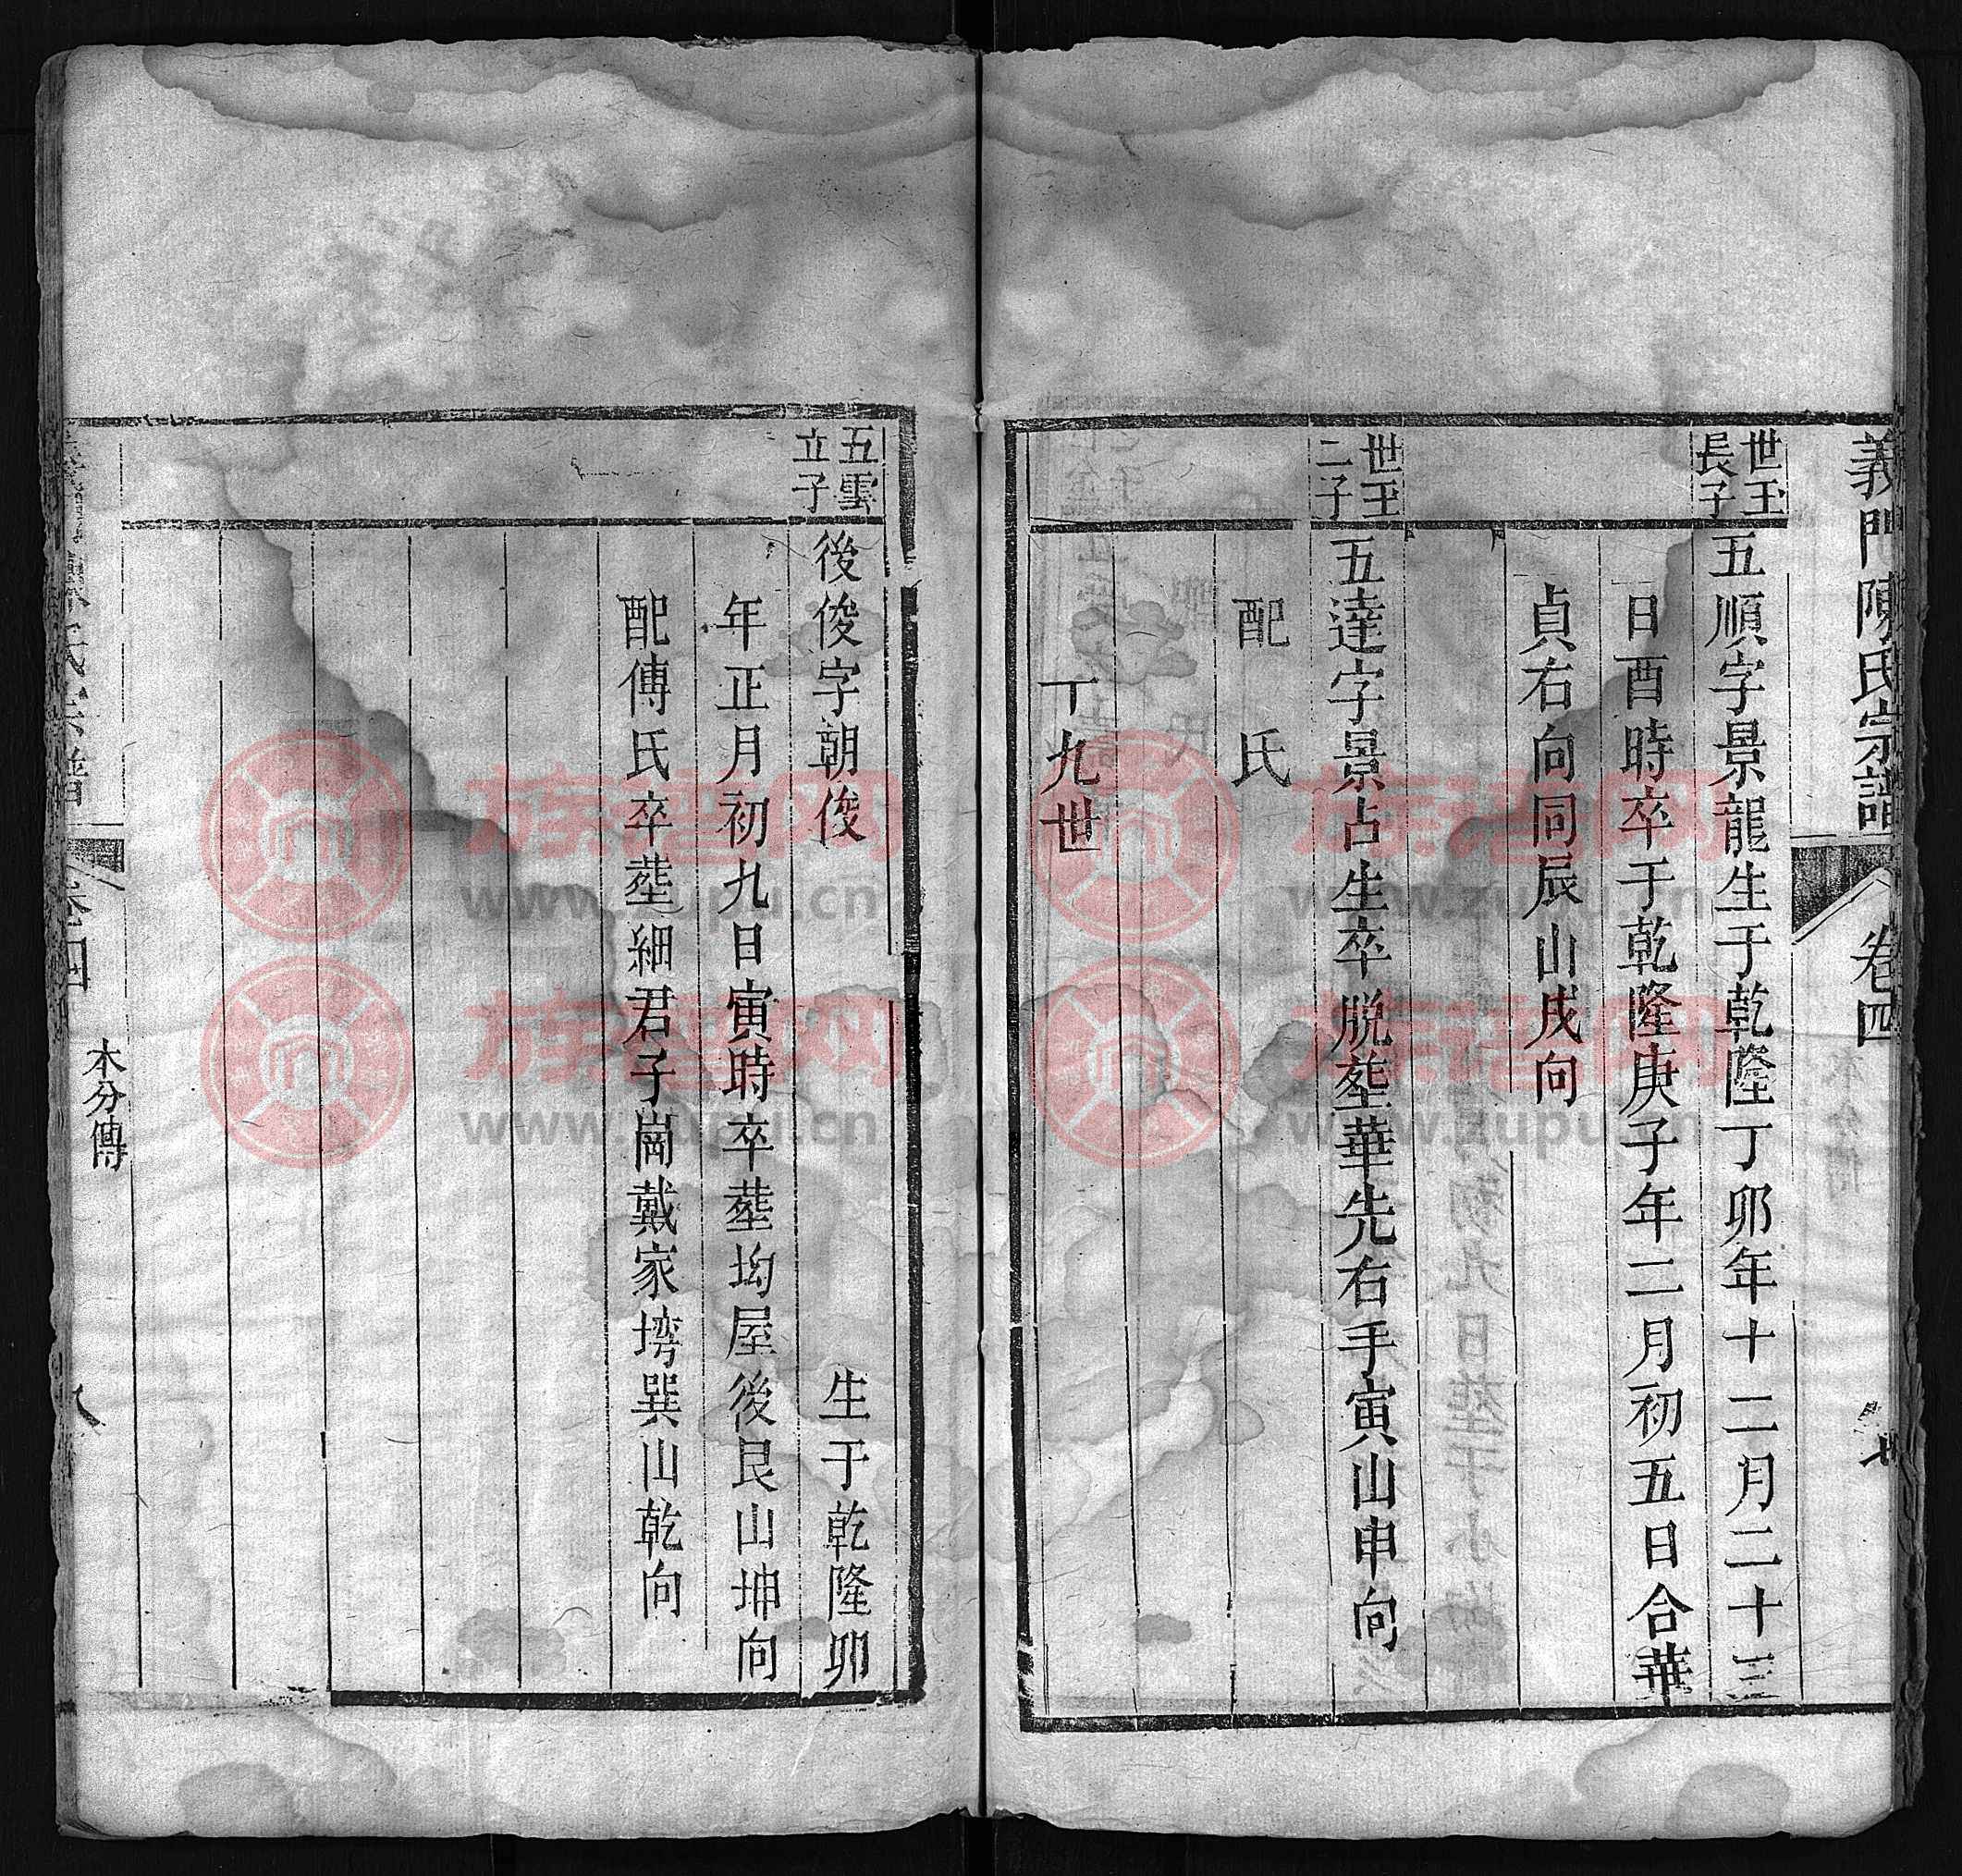 義門陳氏宗譜
卷四
七
世玉
長子
五順字景龍生于乾隆丁卯年十二月二十三
日酉時卒于乾隆庚子年二月初五日合華
貞右向同辰山戌向
世玉
二子
五達字景占生卒脱塟華先右手寅山申向
配 氏
九世
五雲
立子
後俊字朝俊 生于乾隆卯
年正月初九日寅時卒塟坳屋後艮山坤向
配傅氏卒塟細君子崗戴家塆巽山乾向
卷四
木分傳
八
族譜网
www.zupu.cn
族譜网
www.zupu.cn
族譜网
www.zupu.cn
族譜网
www.zupu.cn